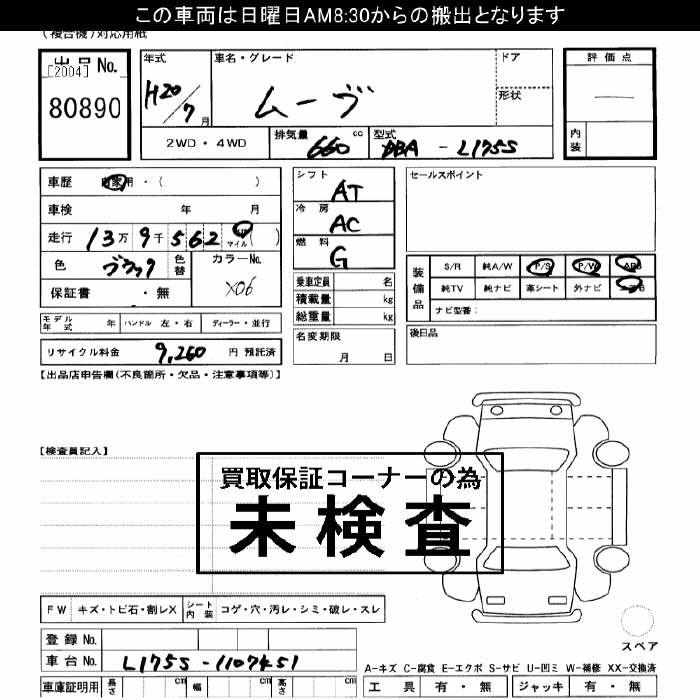 この車両は日曜日AM8:30からの搬出となります
(複合機)対応用紙
出品 No.
[2004]
80890
年式
H20/7 月
車名・グレード
ムーヴ
ドア
形状
評価点
内装
2WD・4WD
排気量 660 cc
型式 DBA - L175S
車歴 自家用・( )
車検 年 月
走行 13万 9千 562 マイル( )
色 ブラック 色替
カラーNo. X06
保証書 ・ 無
モデル年式 年 ハンドル 左・右 ディーラー・並行
リサイクル料金 9,260 円 預託済
シフト AT
冷房 AC
燃料 G
乗車定員 名
積載量 kg
総重量 kg
名変期限
月 日
セールスポイント
装備品
S/R 純A/W P/S P/W ABS
純TV 純ナビ 革シート 外ナビ
ナビ型番:
後日品
【出品店申告欄(不良箇所・欠品・注意事項等)】
【検査員記入】
買取保証コーナーの為
未検査
FW キズ・トビ石・割レX シート内装 コゲ・穴・汚レ・シミ・破レ・スレ
登録 No.
車台 No. L175S-1107451
車庫証明用 長さ cm 幅 cm 高さ cm
スペア
A-キズ C-腐食 E-エクボ S-サビ U-凹ミ W-補修 XX-交換済
工具 有・無 ジャッキ 有・無